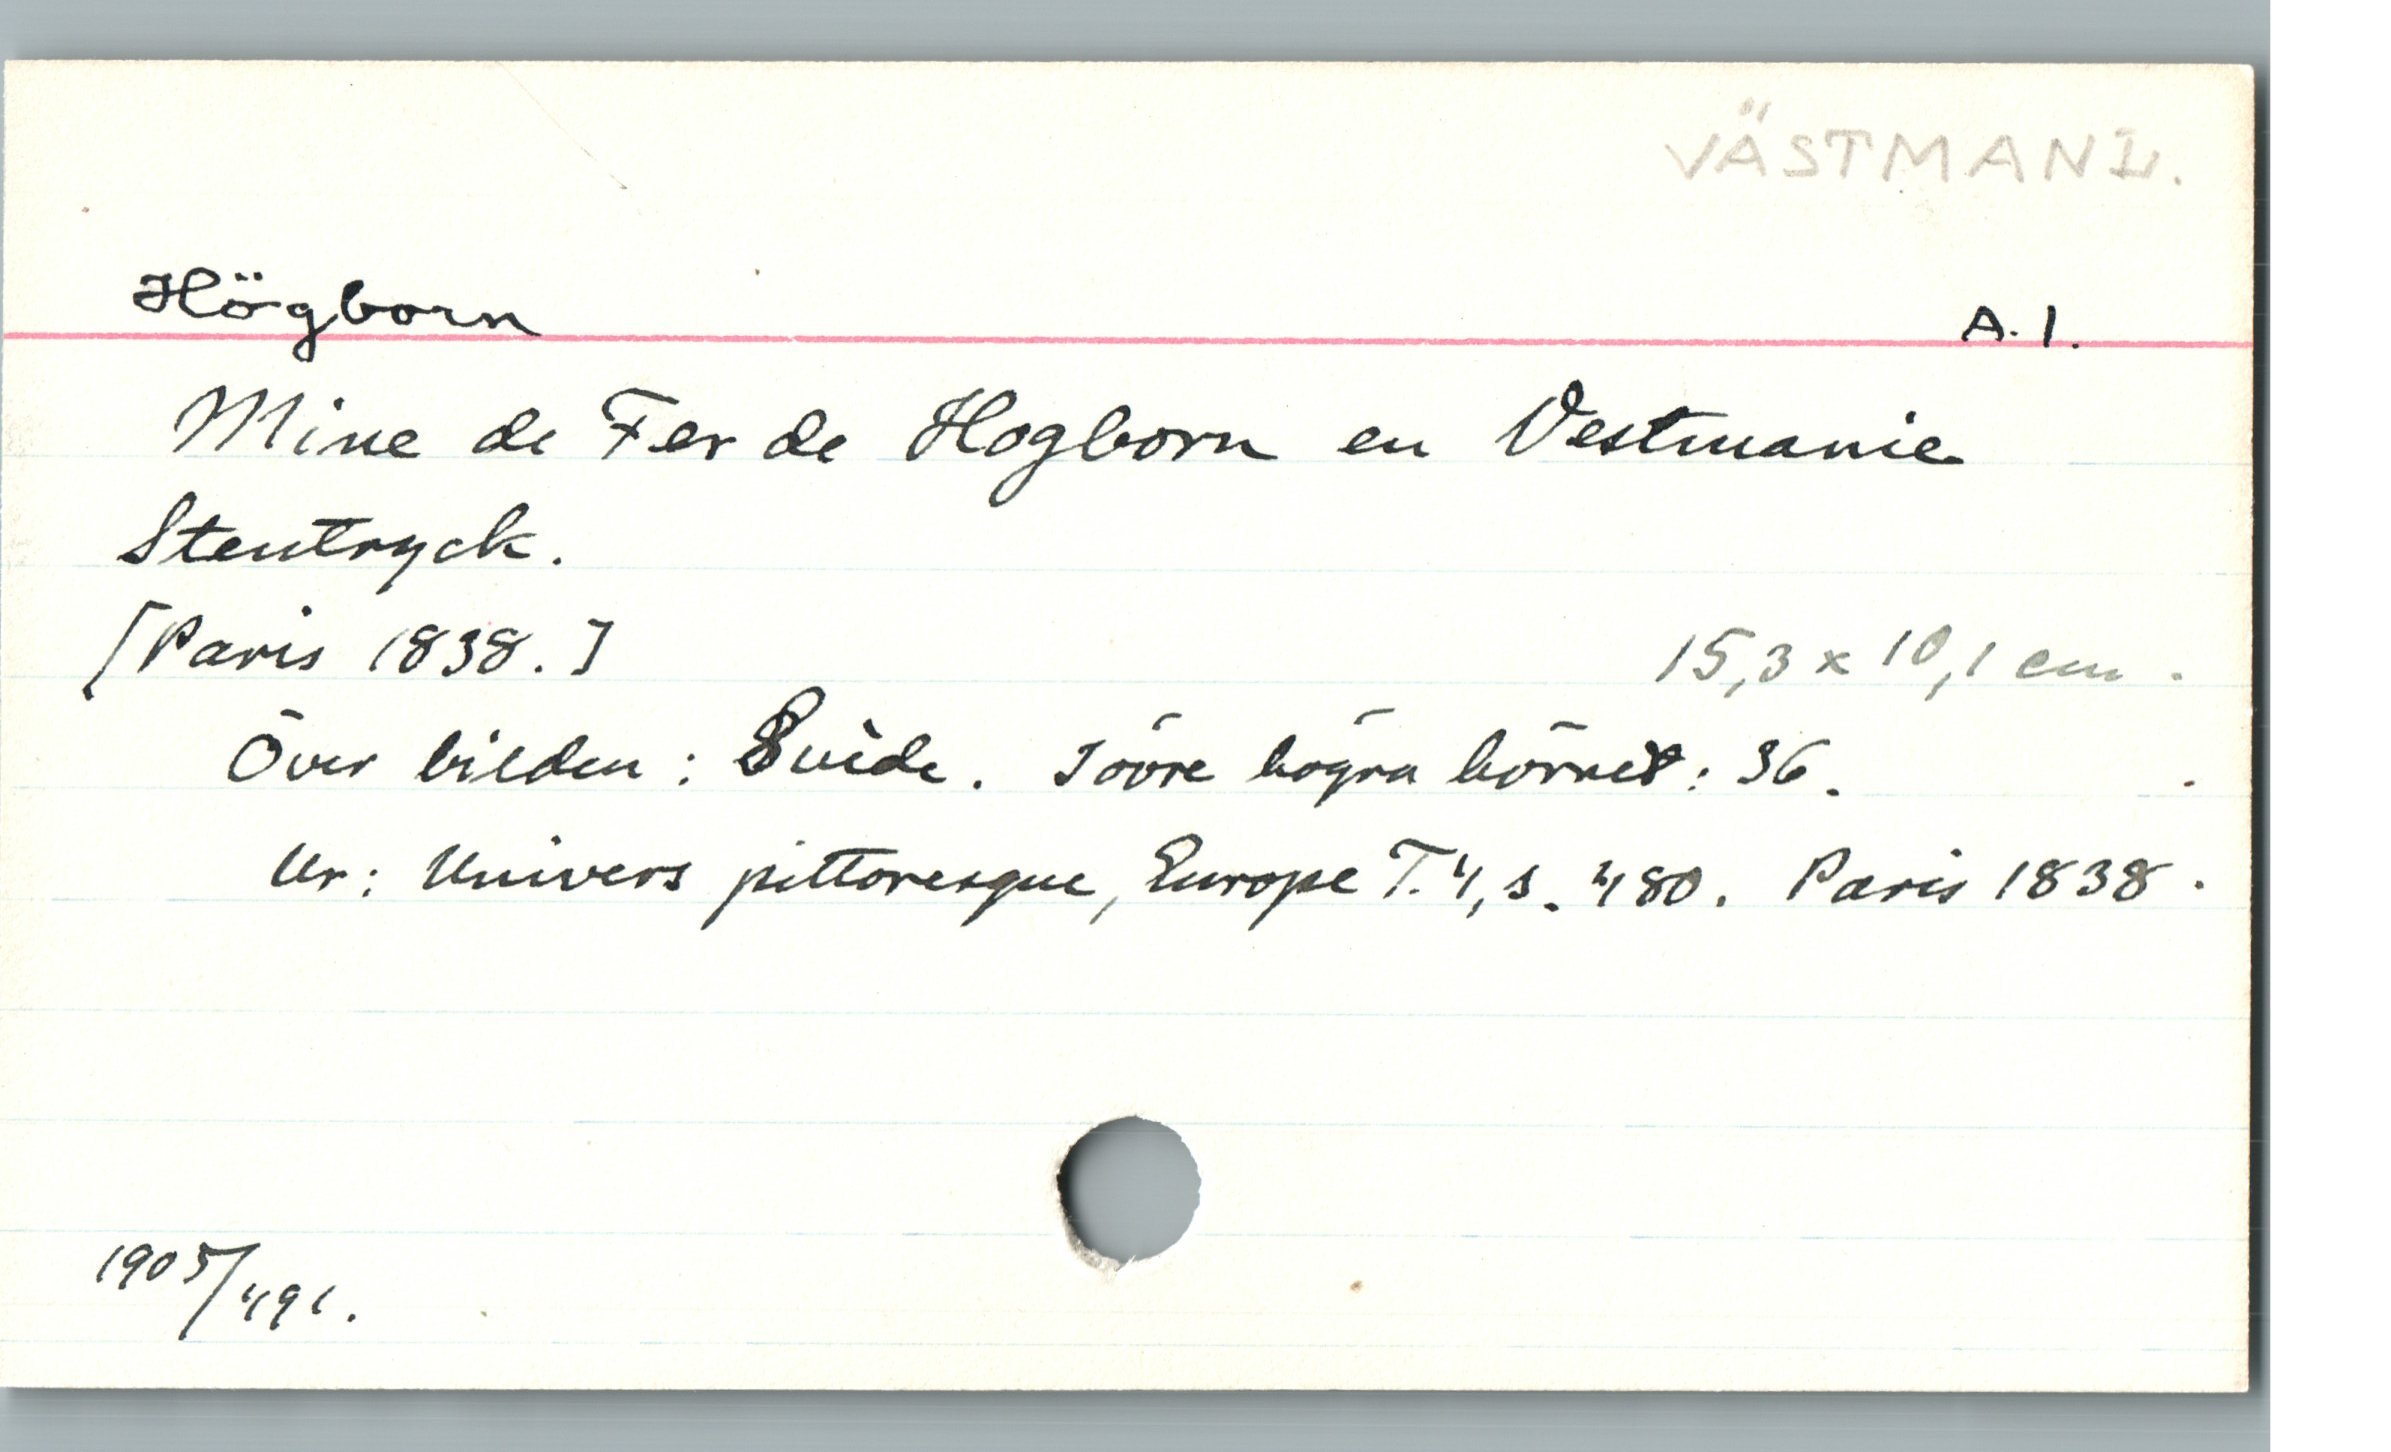 VÄSTMANL.
Högborn A. 1.
Mine de Fer de Hogborn en Vestmanie
Stentryck.
[Paris 1838.] 15,3 x 10,1 cm.
Över bilden: Suède. I övre högra hörnet: 36.
Ur: Univers pittoresque, Europe T. 4, s. 480. Paris 1838.
1905/491.